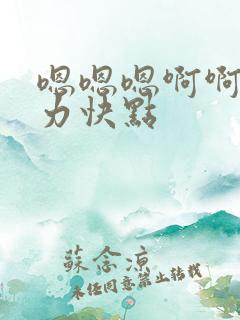 嗯嗯嗯啊啊
力快點
蘇念涼
未经同意禁止转载